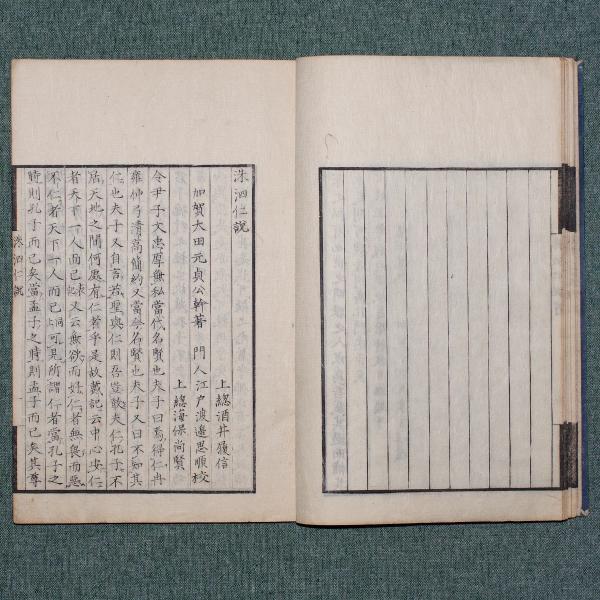 洙泗仁説
上總酒井履信
加賀大田元貞公幹著 門人江戸渡邉思順校
上總海保尚賢
令尹子文忠厚無私當代名賢也夫子曰焉得仁冉
雍仲弓清高簡約又當世名賢也夫子又曰不知其
仁也夫子又自言若聖與仁則吾豈敢夫仁孔子不
居天地之間何處有仁者乎是故戴記云中心安仁
者天下一人而已表記又云無欲而好仁者無畏而惡
不仁者天下一人而已同上可見所謂仁者當孔子之
時則孔子而已矣當孟子之時則孟子而已矣其尊
洙泗仁説